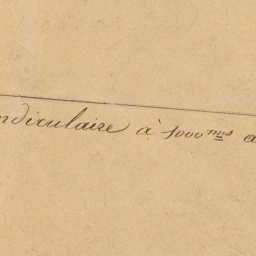 ndiculaire à 1000 mes a